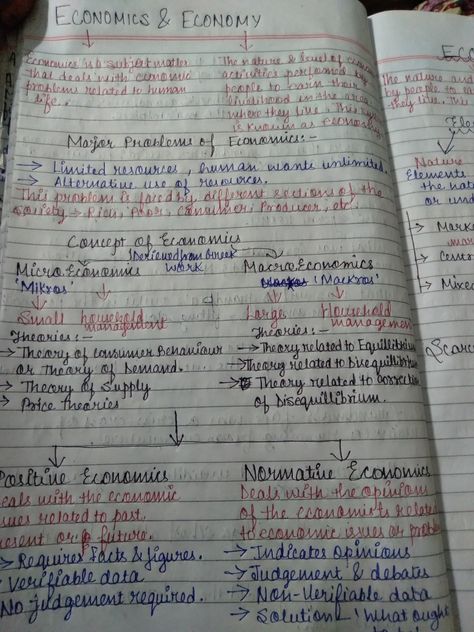 ECONOMICS & ECONOMY
Economics is a subject matter
That deals with economic
problems related to human
life.
The nature & level of
activities performed by
people to earn their
livelihood in the area
where they live. This
is known as economy.
Major Problems of Economics:-
→ Limited resources, human wants unlimited.
→ Alternative use of resources.
This problem is faced by different sections of the
society → Rich, Poor, Consumer, Producer, etc.
Concept of Economics
Derieved from Greek
work
MicroEconomics
'Mikros'
Small household
management
Theories:-
→ Theory of Consumer Behaviour
or Theory of Demand.
→ Theory of Supply
→ Price theories
MacroEconomics
'Mackros'
Large Household
management
Theories:-
→ Theory related to Equillibrium
→ Theory related to Disequillibrium
→ Theory related to correction
of Disequillibrium.
Positive Economics
eals with the economic
sues related to past
resent or future.
→ Requires facts & figures.
Verifiable data
No judgement required.
Normative Economics
Deals with the opinions
of the economists related
to economic issues or
→ Indicates opinions
→ Judgement & debates
→ Non-Verifiable data
→ Solution - 'What ought
The nature and
by people to ea
they live. This
Ele
Nature
Elements
the na
or und
→ Marke
→ Mixed